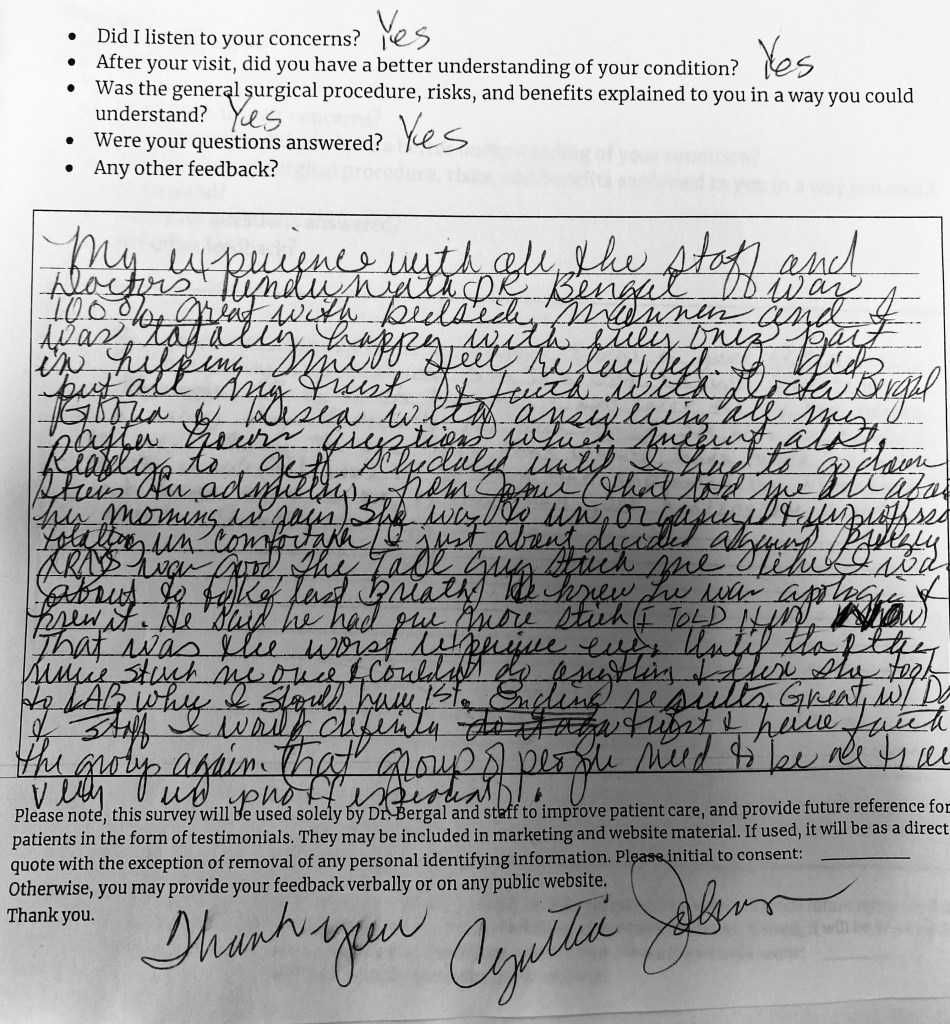 • Did I listen to your concerns? Yes
• After your visit, did you have a better understanding of your condition? Yes
• Was the general surgical procedure, risks, and benefits explained to you in a way you could
understand? Yes
• Were your questions answered? Yes
• Any other feedback?
My experience with all the staff and
Doctors DR Bengal was
100% great with bedside manner and I
was totally happy with part
in helping me feel relaxed. I did
put all my trust & faith with Doctor Bergal
& with answering all my
after hours questions which meant alot.
Ready to get schedule until I had to go down
stairs admitting from (that told me all about
her morning in pain) She was so un organized &
totally un comfortable I just about decided against
XRAYS was good The Tall guy stuck me like I was
about to take last Breath He knew he was &
knew it. He said he had one more stick (I TOLD HIM NOW
That was the worst ever Until the
nurse stuck me once & couldn't do & then she took
to LAB where I should have 1st. Ending results Great w/ D
& staff I would trust & have faith
the group again. That group of people need to be
very
Please note, this survey will be used solely by Dr. Bergal and staff to improve patient care, and provide future reference for
patients in the form of testimonials. They may be included in marketing and website material. If used, it will be as a direct
quote with the exception of removal of any personal identifying information. Please initial to consent:
Otherwise, you may provide your feedback verbally or on any public website.
Thank you.
Thank you Cynthia